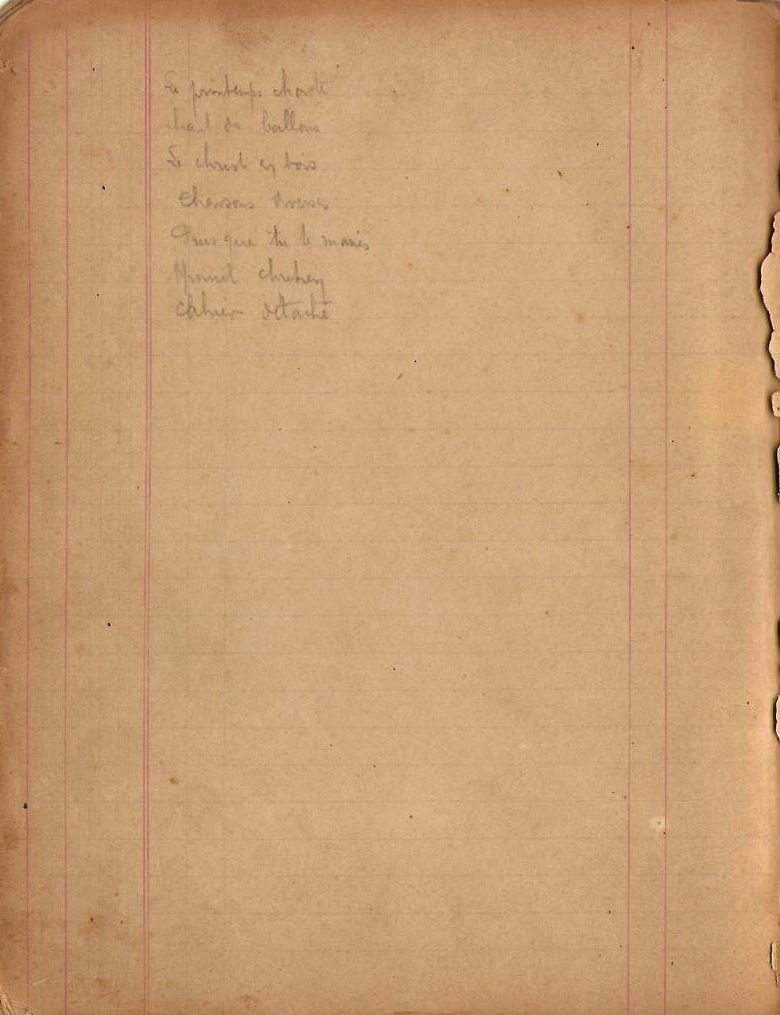 Le printemps chante
chant de ballons
Le christ en bois
Chansons diverses
Puis que tu te maries
chretien
Cahier détaché